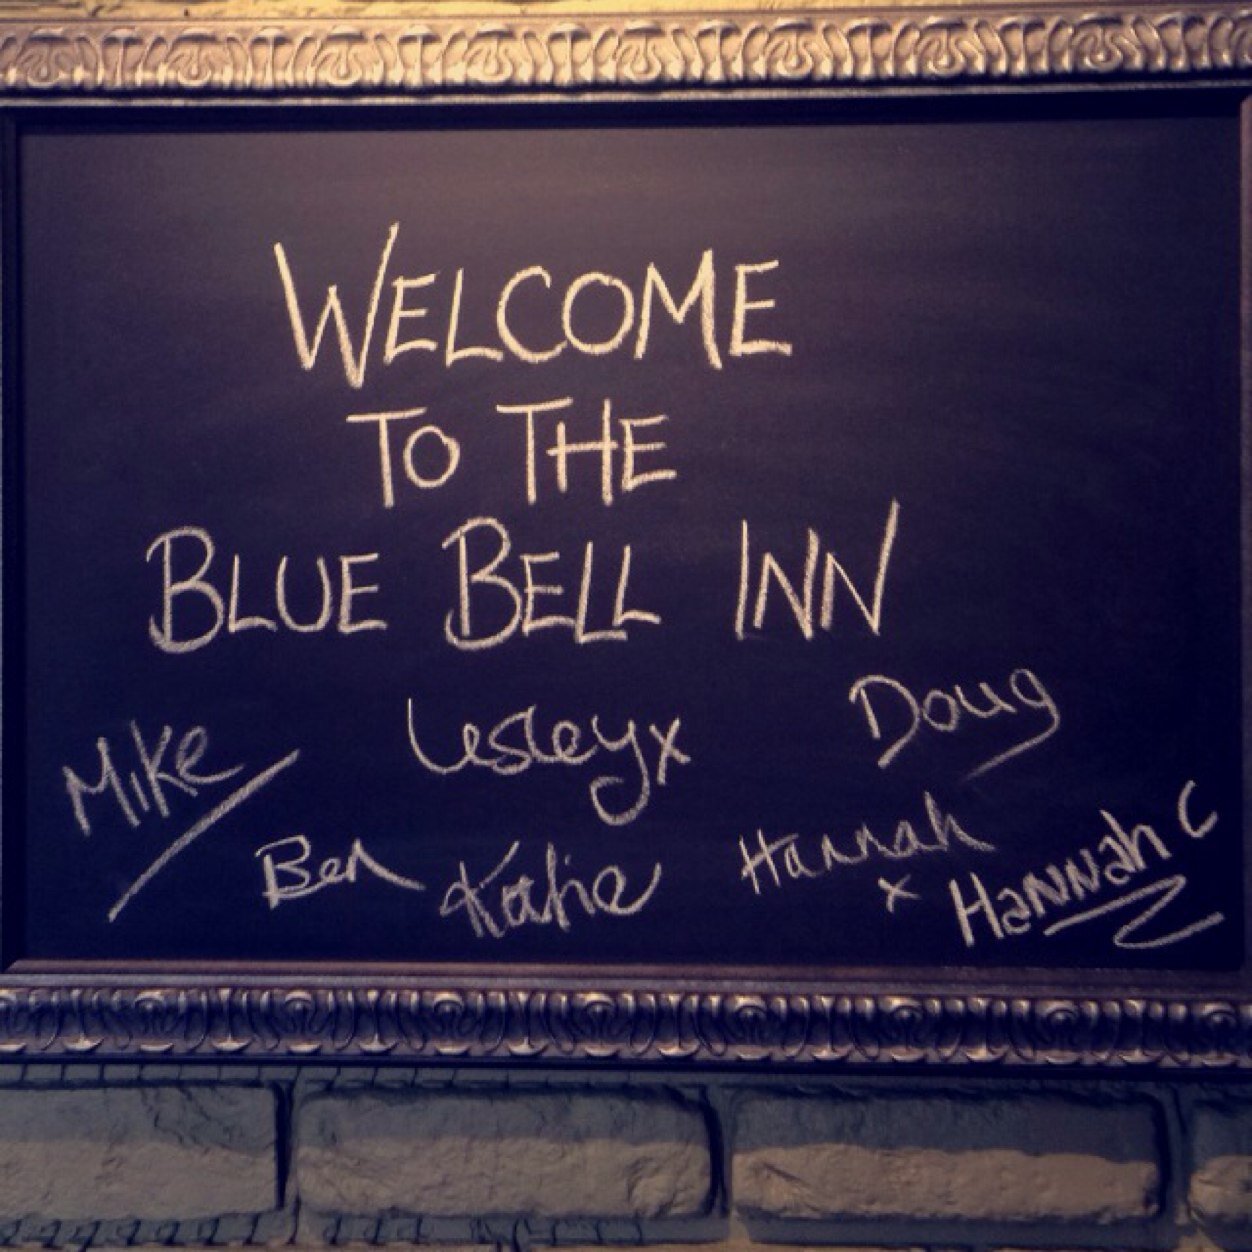 WELCOME
TO THE
BLUE BELL INN
Mike Lesley x Doug
Ben Katie Hannah x Hannah C